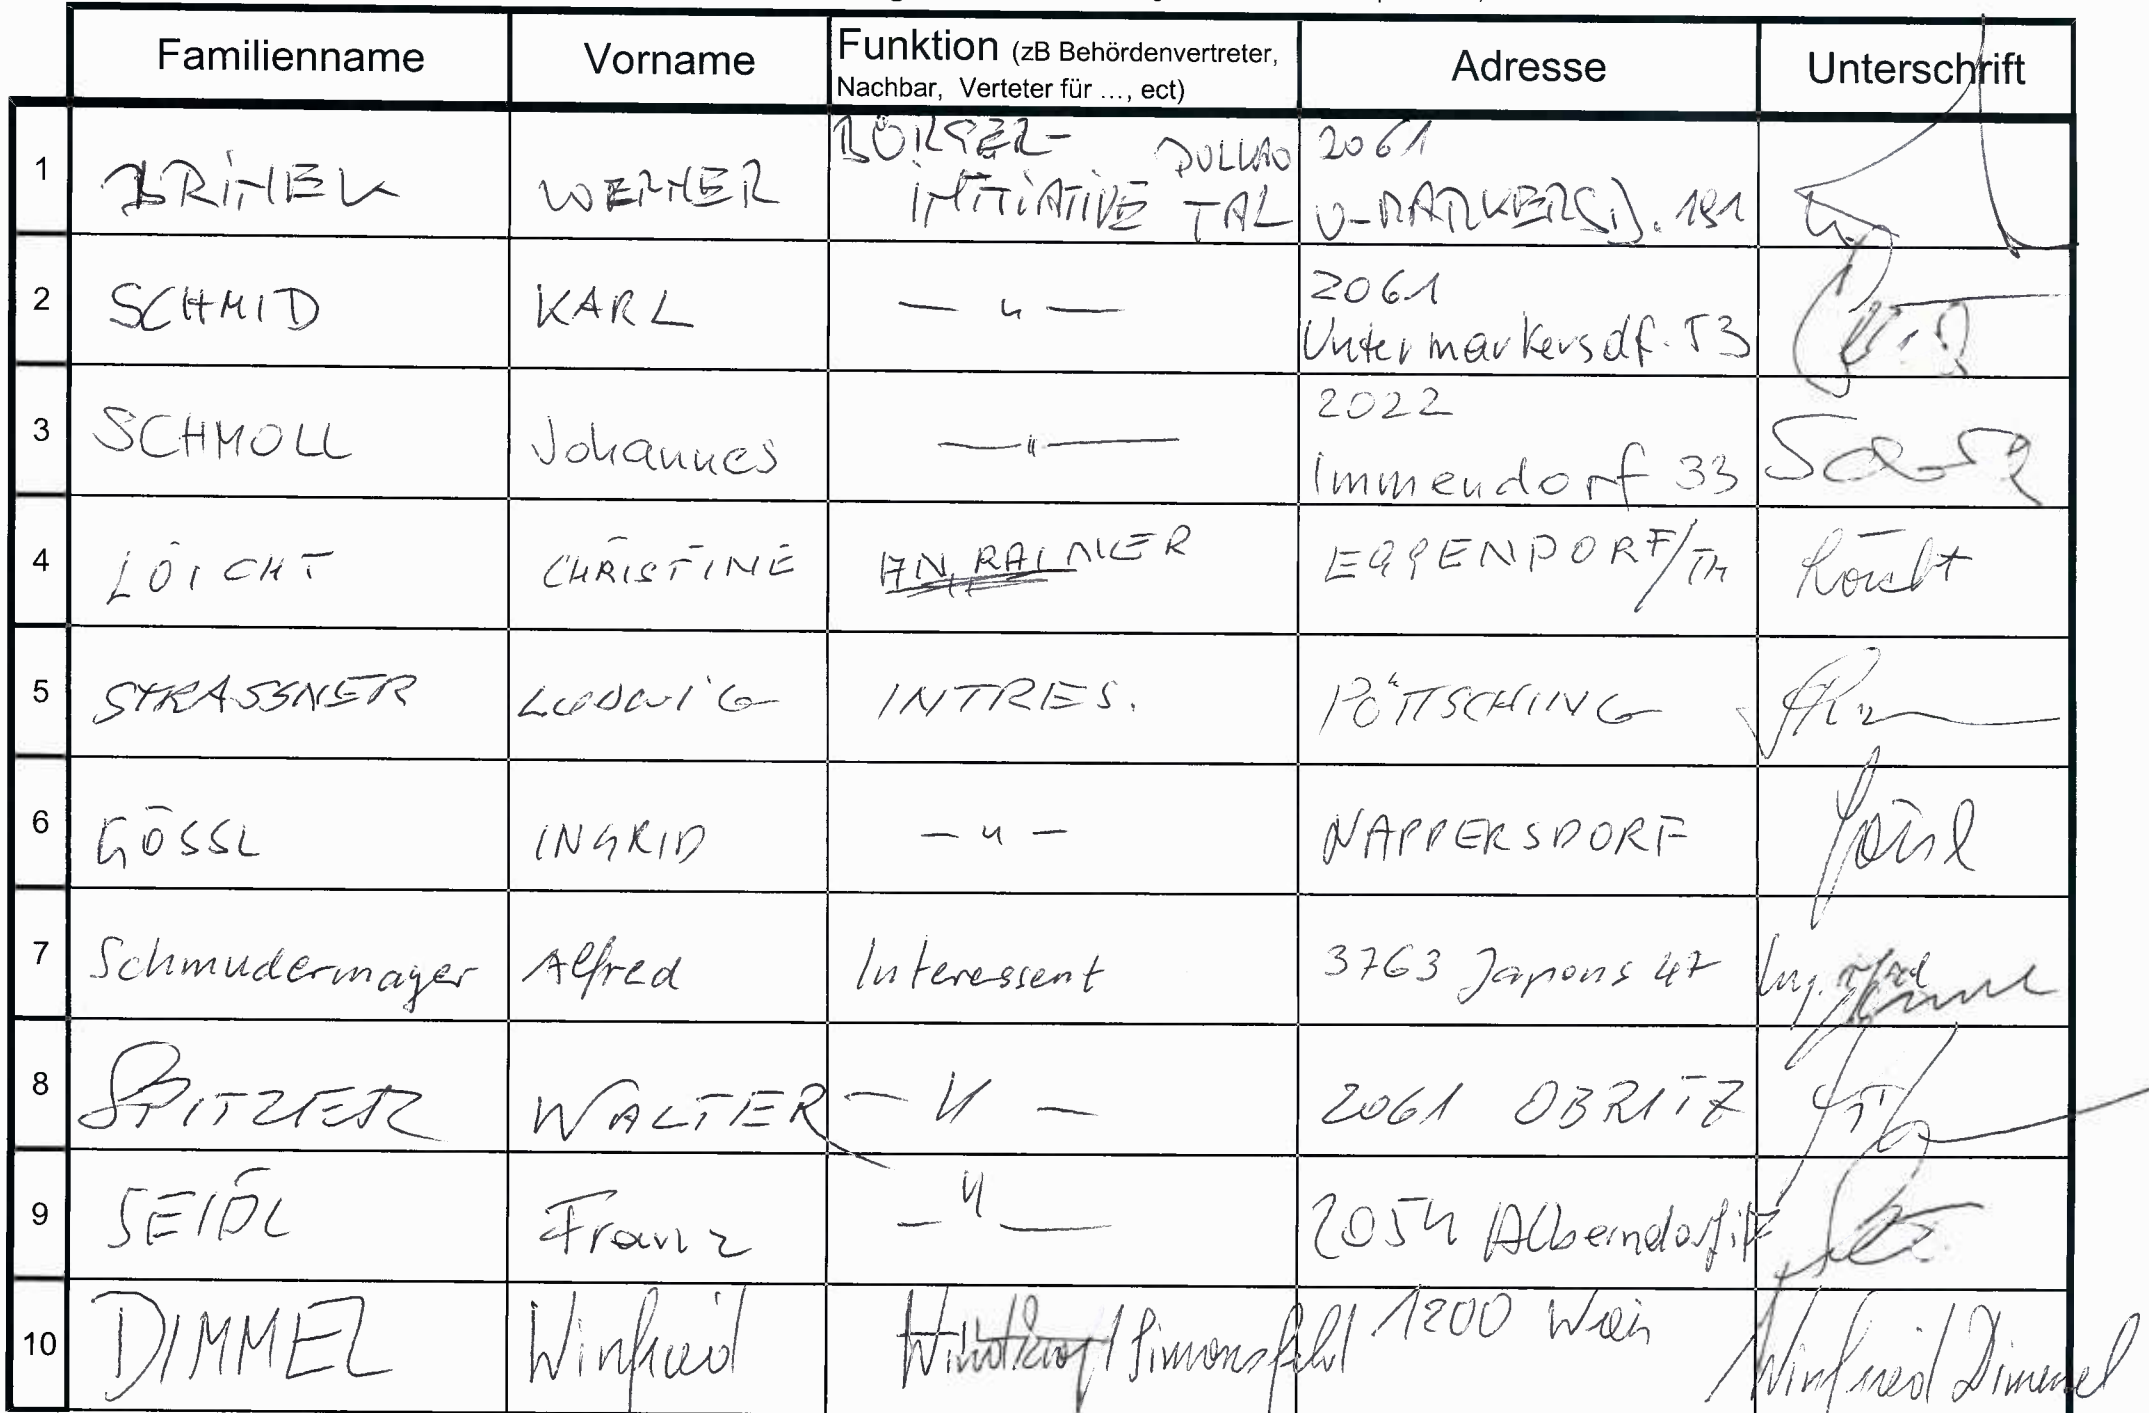 Familienname Vorname Funktion (zB Behördenvertreter, Nachbar, Verteter für ..., ect) Adresse Unterschrift
1 WERNER BÜRGER- INITIATIVE PULKAU TAL 2061 U-MARKERSD. 191
2 SCHMID KARL — " — 2061 Untermarkersdf. 53
3 SCHMOLL Johannes — " — 2022 Immendorf 33
4 LÖICHT CHRISTINE EGGENDORF/TH Löicht
5 STRASSNER LUDWIG INTRES. PÖTTSCHING
6 GÖSSL INGRID — " — NAPPERSDORF Gössl
7 Schmudermayer Alfred Interessent 3763 Japons 47 Ing.
8 SPITZER WALTER — " — 2061 OBRITZ
9 SEIDL Franz — " — 2054 Alberndorf i.P
10 DIMMEL Winfried Windkraft Simonsfeld 1200 Wien Winfried Dimmel